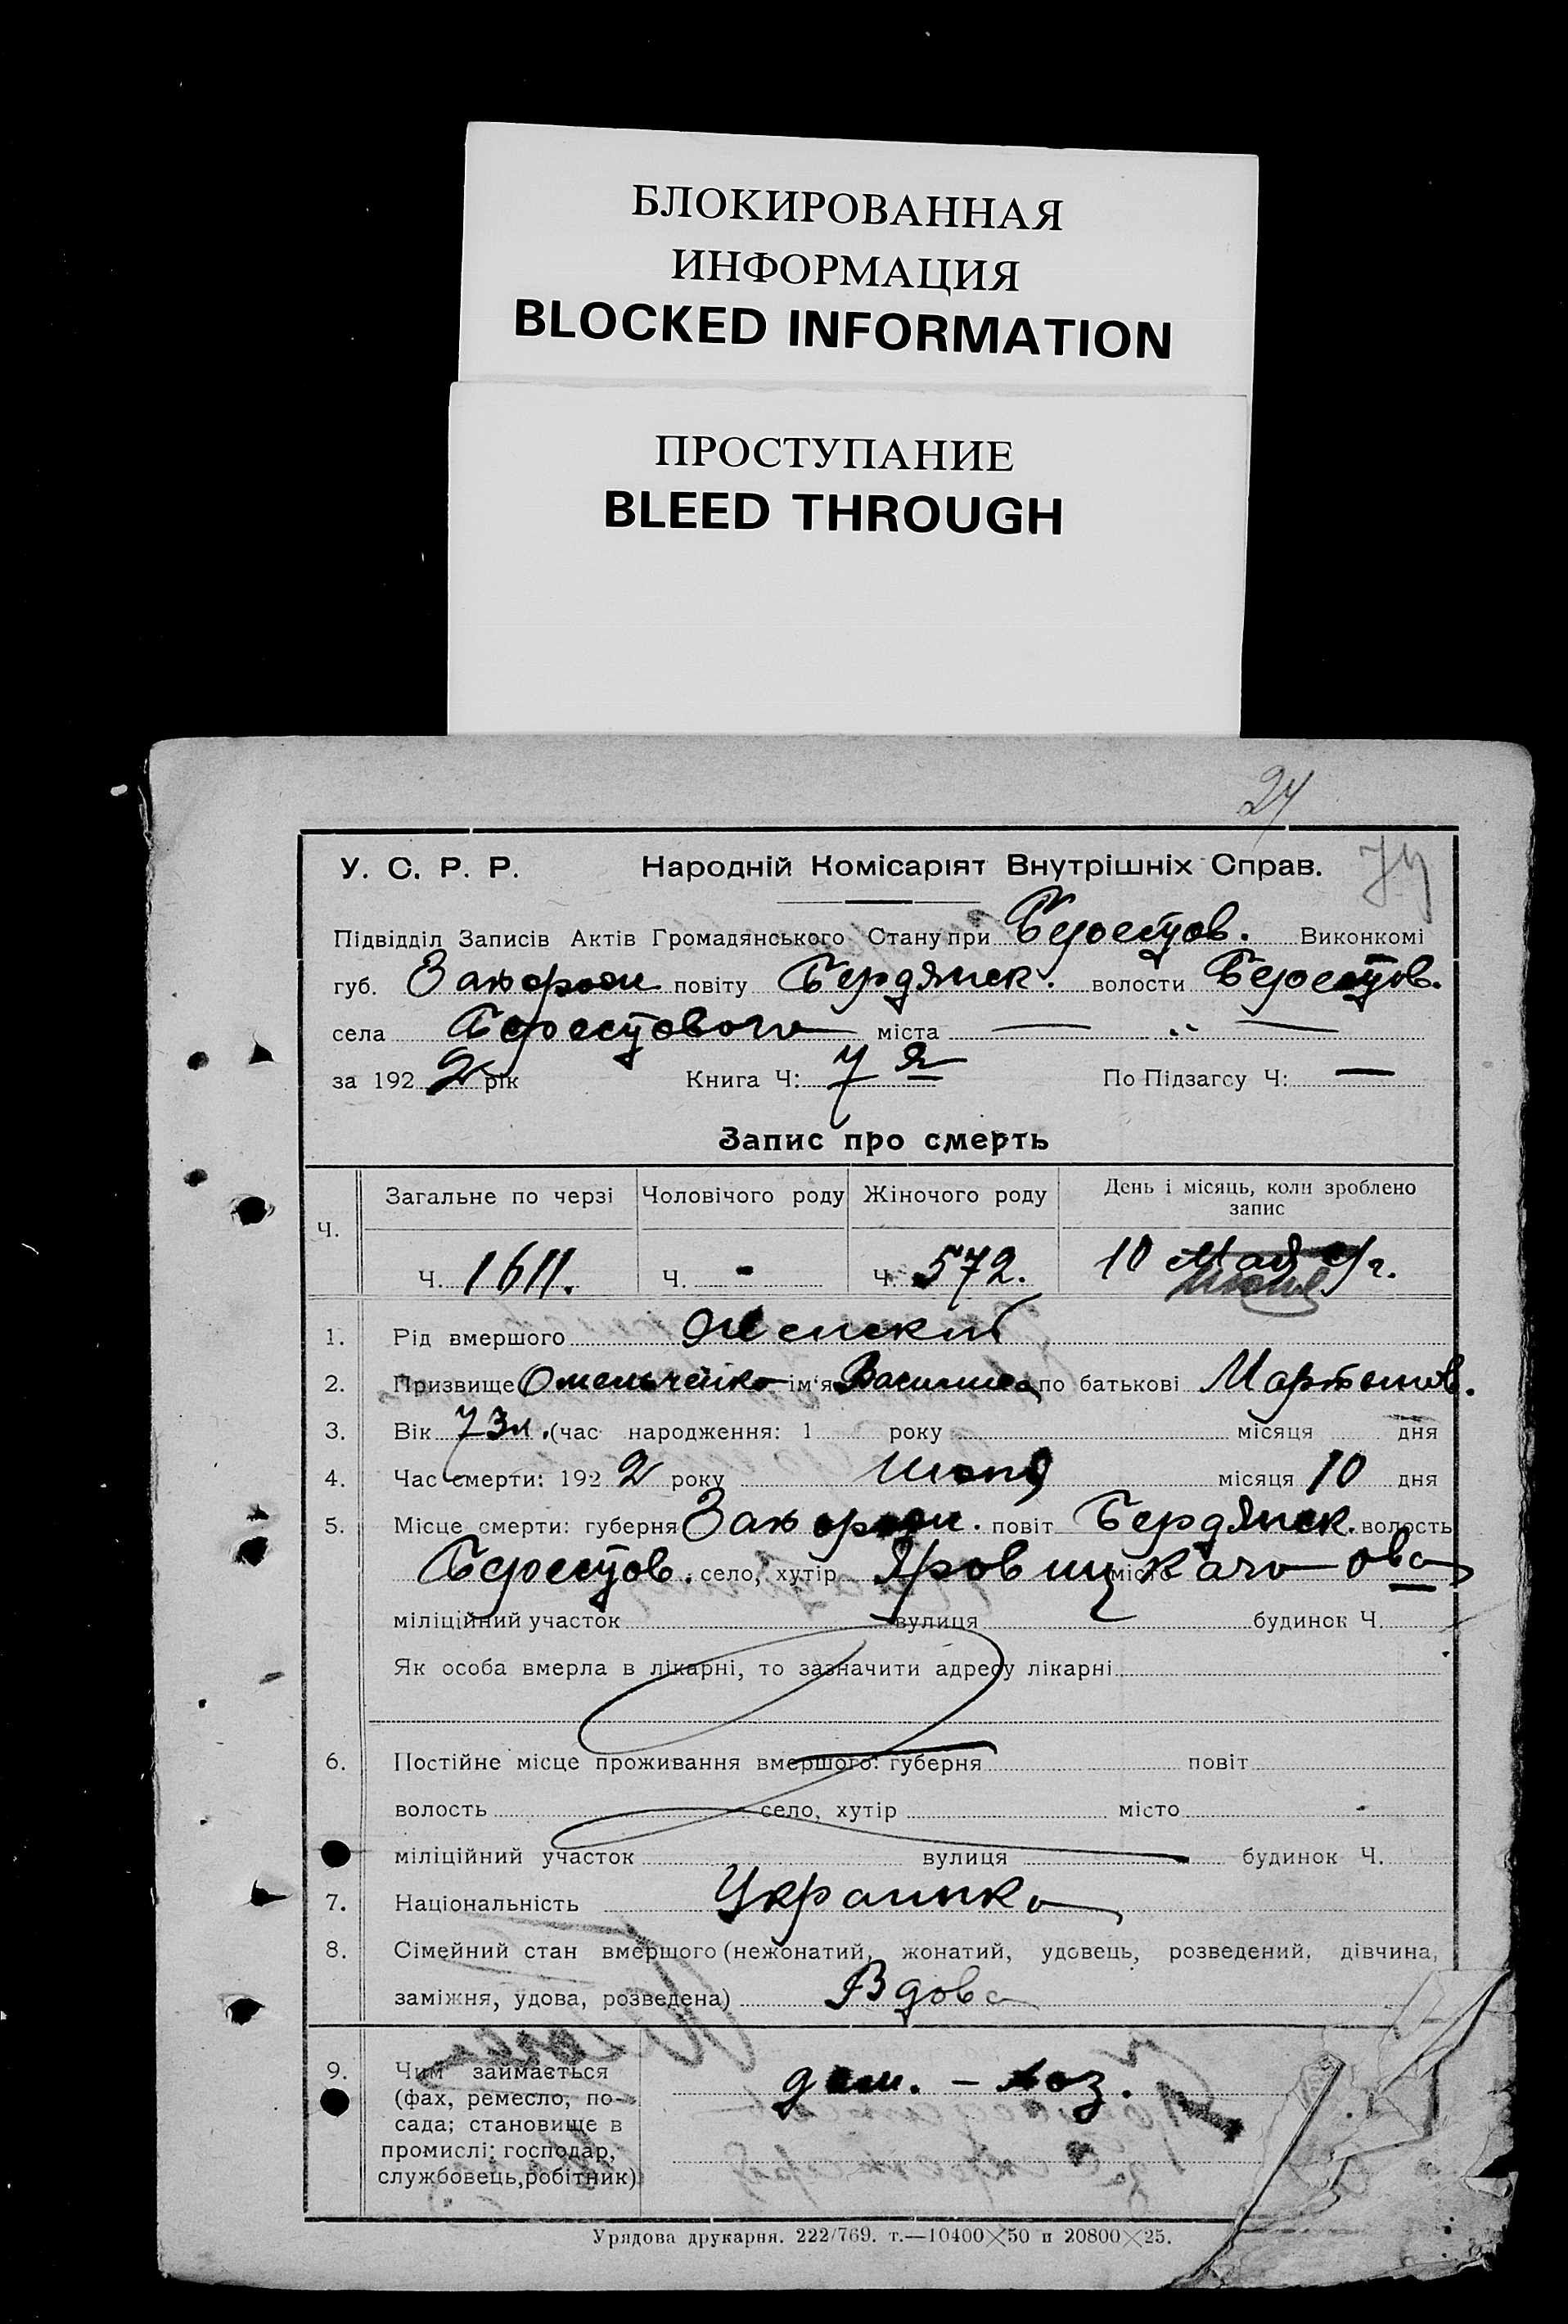 БЛОКИРОВАННАЯ
ИНФОРМАЦИЯ
BLOCKED INFORMATION
ПРОСТУПАНИЕ
BLEED THROUGH
24
У. С. Р. Р. Народній Комісаріят Внутрішніх Справ.
Підвідділ Записів Актів Громадянського Стану при Берестов. Виконкомі
губ. Запорож повіту Бердянск. волости Берестов.
села Берестового міста —
за 1922 рік Книга Ч: 7я По Підзагсу Ч: —
Запис про смерть
Ч. Загальне по черзі Чоловічого роду Жіночого роду День і місяць, коли зроблено
запис
Ч. 1611. Ч. - Ч. 572. 10 Мая с/г.
Июня
1. Рід вмершого Женский
2. Призвище Омельченко ім'я Василиса по батькові Мартынов.
3. Вік 73 л. (час народження: 1 року місяця дня
4. Час смерти: 1922 року Июня місяця 10 дня
5. Місце смерти: губерня Запорож. повіт Бердянск. волость
Берестов. село, хутір місто
міліційний участок вулиця будинок Ч.
Як особа вмерла в лікарні, то зазначити адресу лікарні
6. Постійне місце проживання вмершого: губерня повіт
волость село, хутір місто
міліційний участок вулиця будинок Ч.
7. Національність Украинка
8. Сімейний стан вмершого (нежонатий, жонатий, удовець, розведений, дівчина,
заміжня, удова, розведена) Вдова
9. Чим займається дом. - хоз.
(фах, ремесло, по-
сада; становище в
промислі: господар,
службовець, робітник)
Урядова друкарня. 222/769. т.—10400×50 и 20800×25.